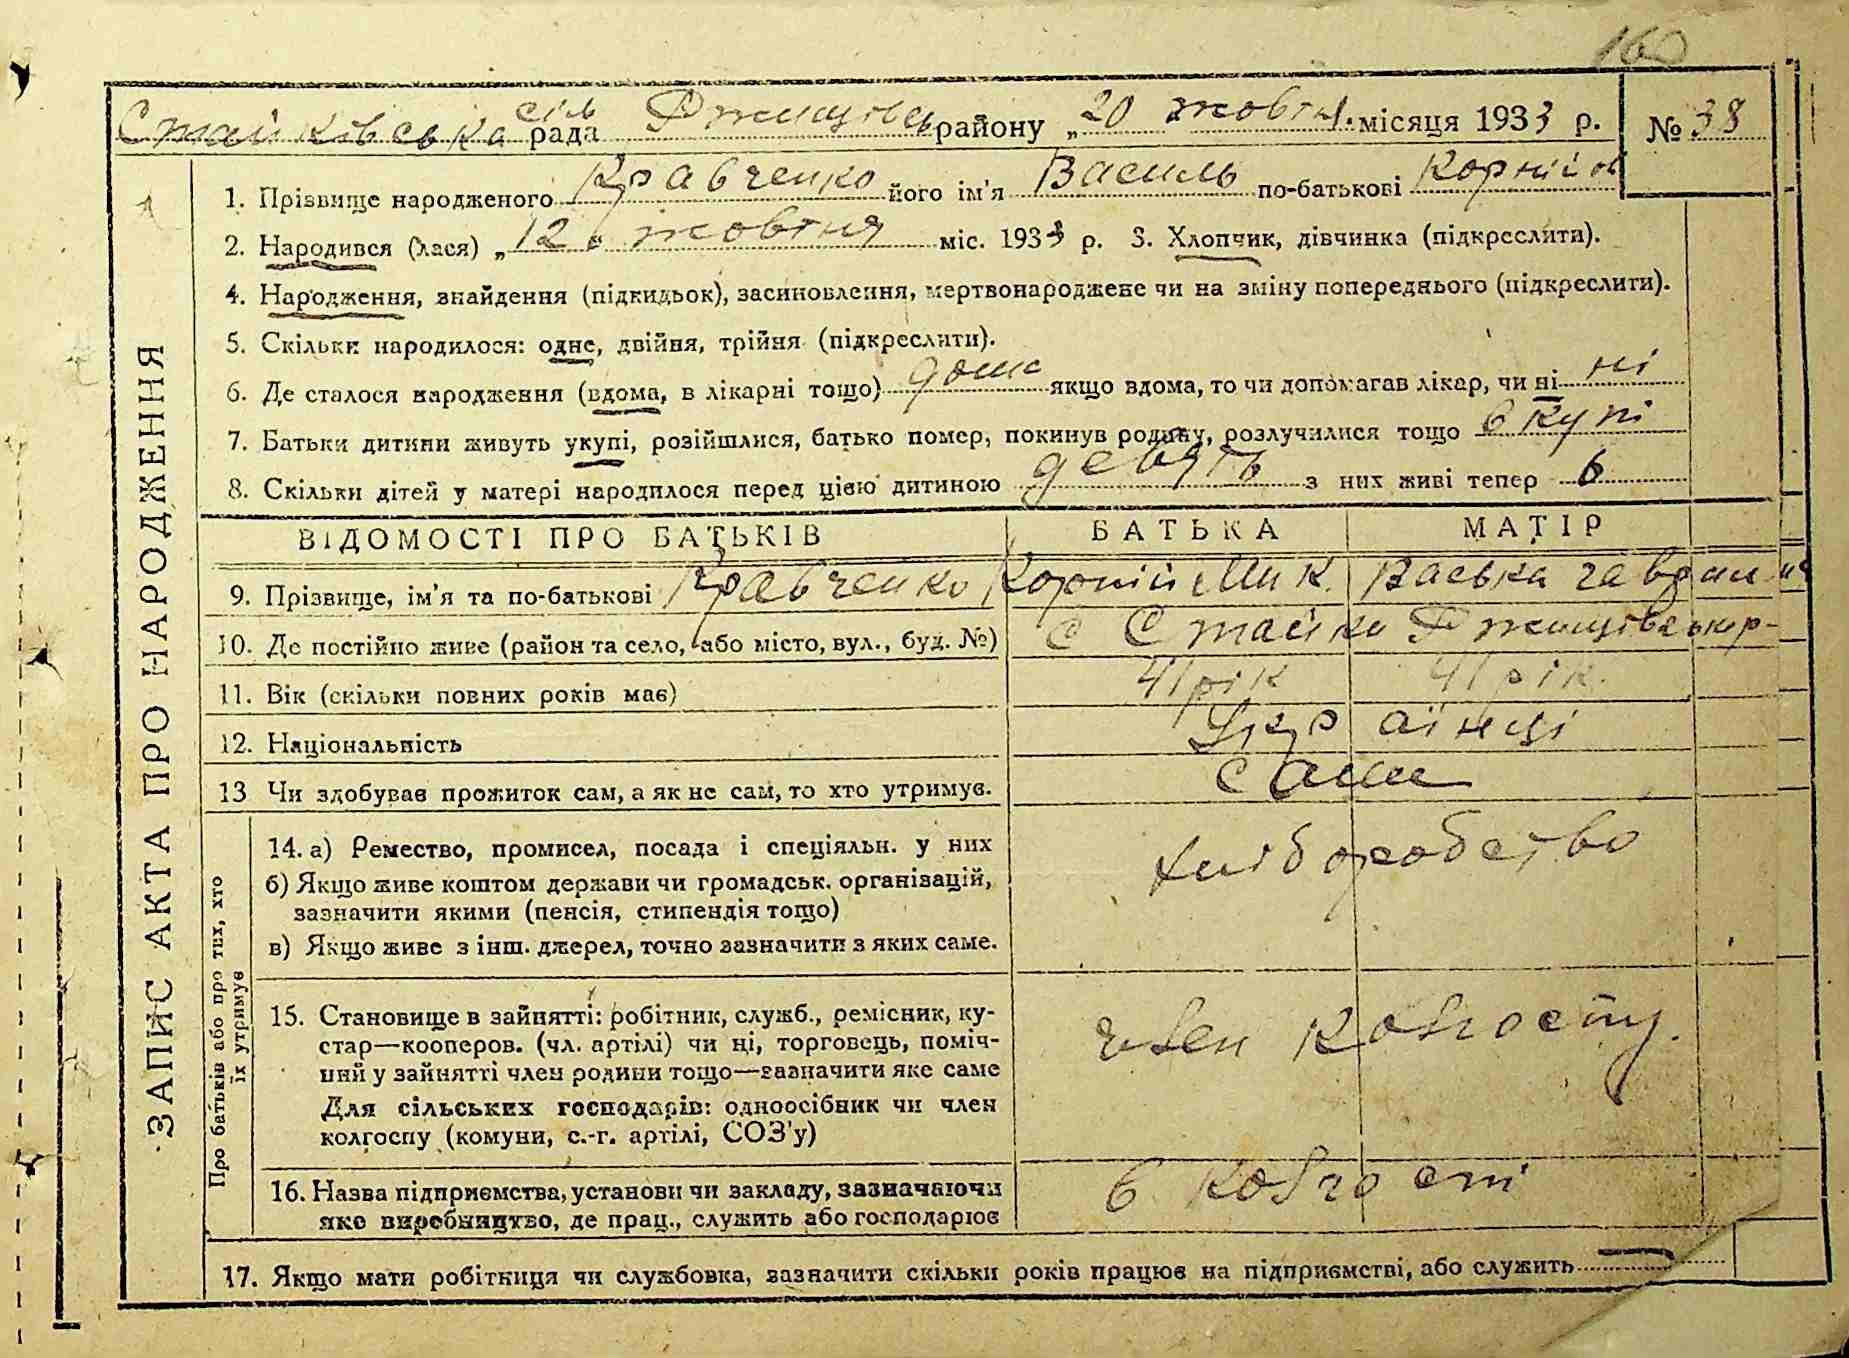 160
Стайківська сіль рада Ржищівськ району „20 жовтня місяця 1933 р. № 38
1. Прізвище народженого Кравченко його ім'я Василь по-батькові Корнійов
2. Народився (лася) „12" жовтня міс. 1933 р. 3. Хлопчик, дівчинка (підкреслити).
4. Народження, знайдення (підкидьок), засиновлення, мертвонароджене чи на зміну попереднього (підкреслити).
5. Скільки народилося: одне, двійня, трійня (підкреслити).
6. Де сталося народження (вдома, в лікарні тощо) дома якщо вдома, то чи допомагав лікар, чи ні ні
7. Батьки дитини живуть укупі, розійшлися, батько помер, покинув родину, розлучилися тощо вкупі
8. Скільки дітей у матері народилося перед цією дитиною девять з них живі тепер 6
ВІДОМОСТІ ПРО БАТЬКІВ БАТЬКА МАТІР
9. Прізвище, ім'я та по-батькові Кравченко Корній Мик. Васька Гаврил
10. Де постійно живе (район та село, або місто, вул., буд. №) с Стайки Ржищівськ р-
11. Вік (скільки повних років має) 41 рік 41 рік.
12. Національність Українці
13 Чи здобував прожиток сам, а як не сам, то хто утримує. сами
14. а) Ремество, промисел, посада і спеціяльн. у них хліборобство
б) Якщо живе коштом держави чи громадськ. організацій,
зазначити якими (пенсія, стипендія тощо)
в) Якщо живе з інш. джерел, точно зазначити з яких саме.
15. Становище в зайнятті: робітник, служб., ремісник, ку-
стар—кооперов. (чл. артілі) чи ні, торговець, поміч- член колгоспу.
ний у зайнятті член родини тощо—зазначити яке саме
Для сільських господарів: одноосібник чи член
колгоспу (комуни, с.-г. артілі, СОЗ'у)
16. Назва підприємства, установи чи закладу, зазначаючи в колгоспі
яке виробництво, де прац., служить або господарює
17. Якщо мати робітниця чи службовка, зазначити скільки років працює на підприємстві, або служить —
ЗАПИС АКТА ПРО НАРОДЖЕННЯ
Про батьків або про тих, хто
їх утримує